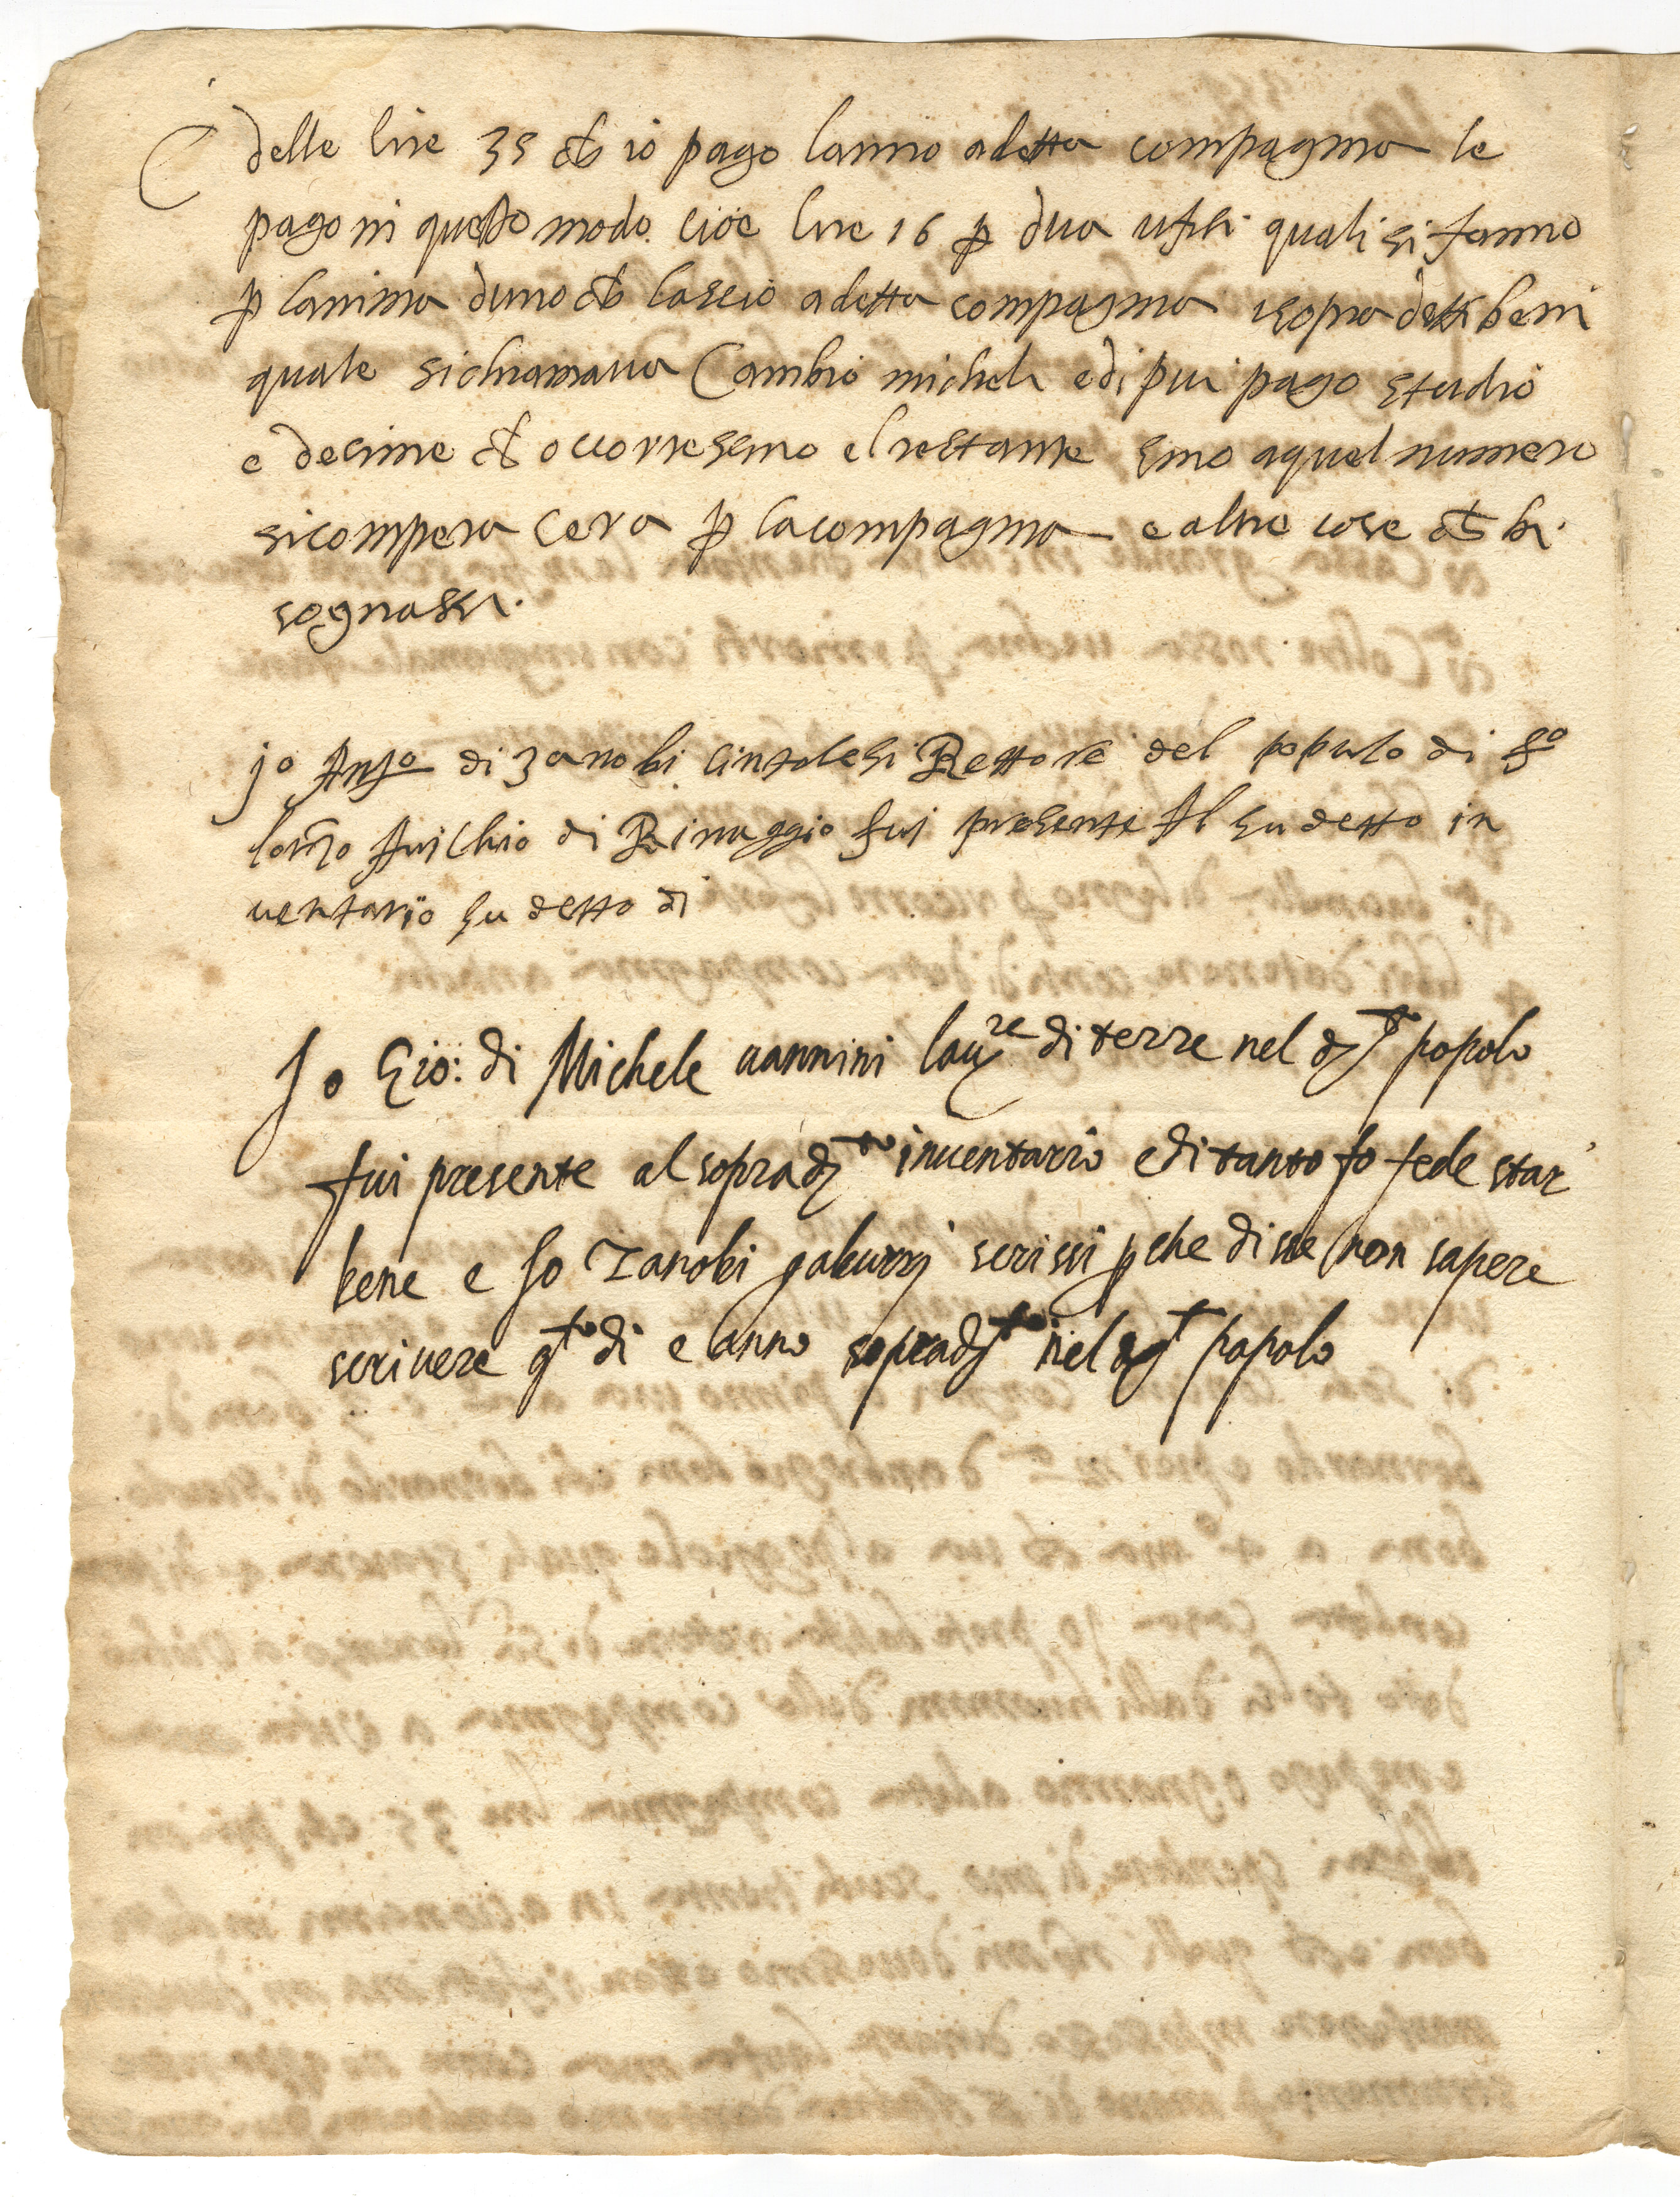 delle lire 35 ch io pago lanno a detta compagnia le
pago in questo modo cioe lire 16 p dua ufiti quali si fanno
p lanima duno ch lascio a detta compagnia i sopra detti beni
quale si chiamava Cambio micheli e di piu pago studio
e decime ch occorressino el restante sino a quel numero
si compera cera p la compagnia e altre cose ch bi
sognassi.
jo Anto di Zanobi Cintolesi Rettore del populo di So
lorzo A vichio di Rimaggio fui presente Al sudetto in
uentario sudetto di
Jo Gio: di Michele uannini lau.re di terre nel d. popolo
fui presente al soprad.to inuentario e di tanto fo fede star
bene e Jo Zanobi gaburri scrissi p che disse non sapere
scriuere q.to di e anno soprad.to nel d. popolo